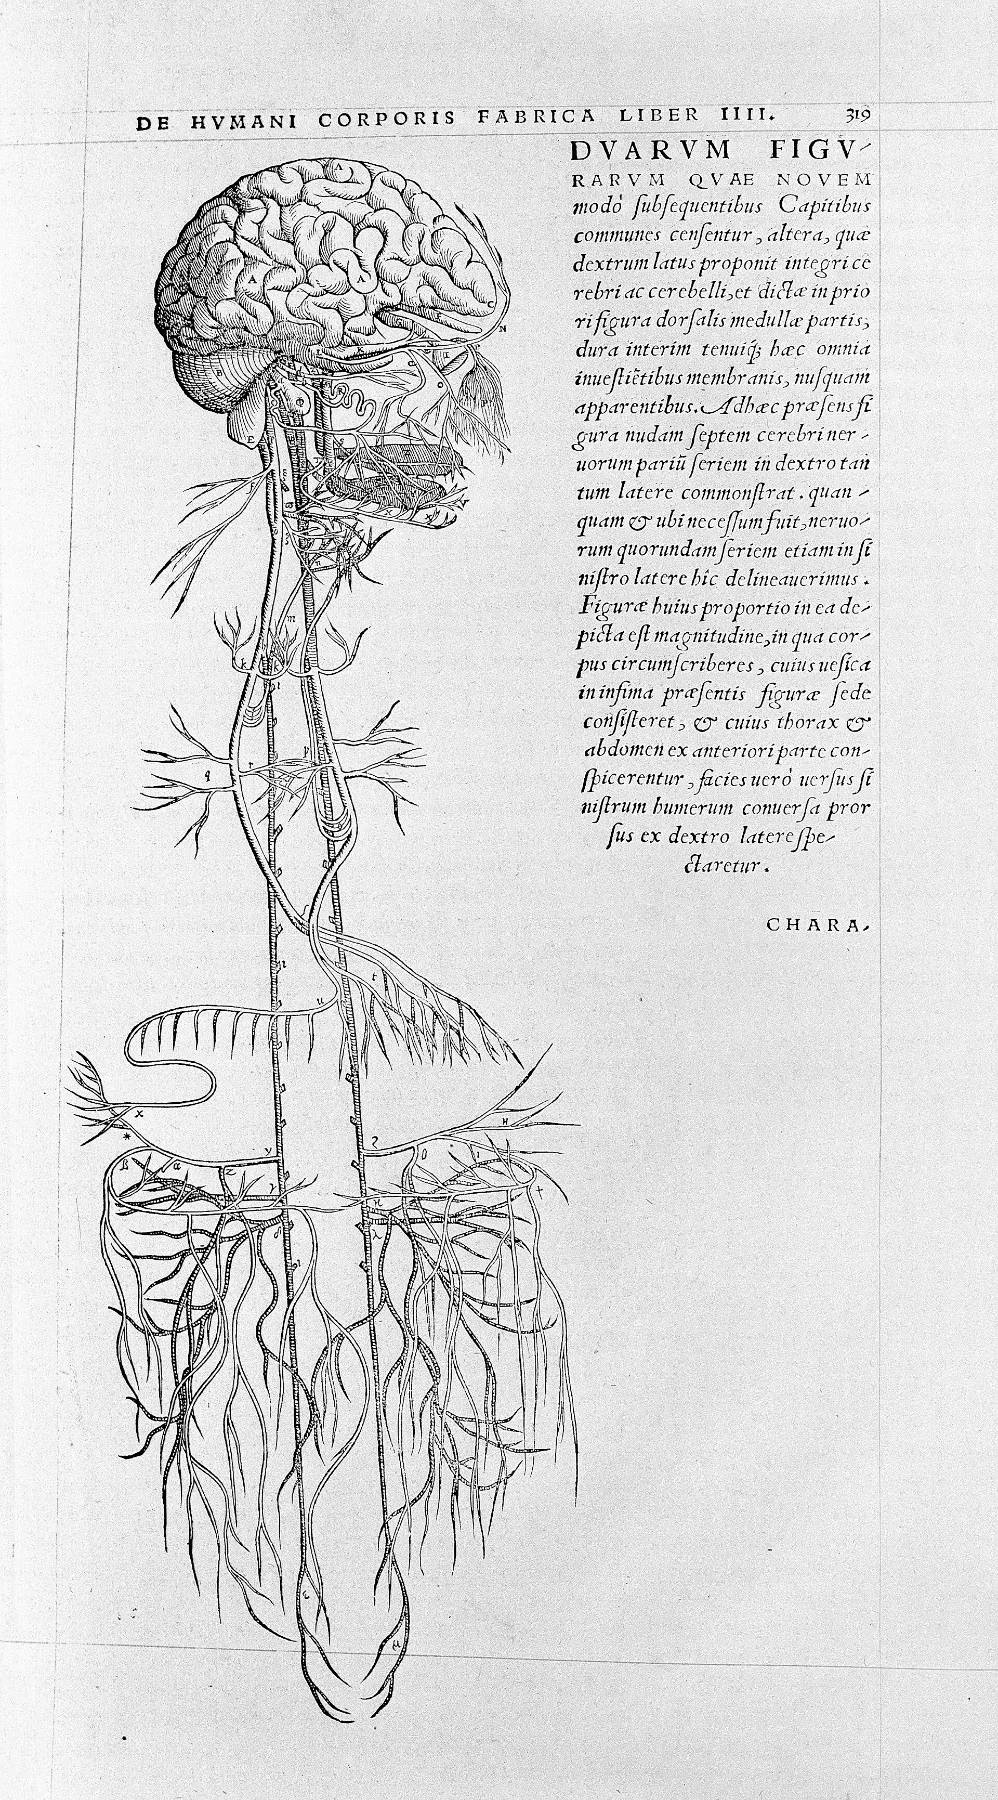 DE HVMANI CORPORIS FABRICA LIBER IIII. 319
DVARVM FIGV-
RARVM QVAE NOVEM
modò ſubſequentibus Capitibus
communes cenſentur, altera, quæ
dextrum latus proponit integri ce
rebri ac cerebelli, et dictæ in prio
ri figura dorſalis medullæ partis,
dura interim tenuiq́; hæc omnia
inueſtiẽtibus membranis, nuſquam
apparentibus. Adhæc præſens fi
gura nudam ſeptem cerebri ner-
uorum pariũ ſeriem in dextro tan
tum latere commonſtrat. quan-
quam & ubi neceſſum fuit, neruo-
rum quorundam ſeriem etiam in ſi
niſtro latere hîc delineauerimus.
Figuræ huius proportio in ea de-
picta eſt magnitudine, in qua cor-
pus circumſcriberes, cuius ueſica
in infima præſentis figuræ ſede
conſiſteret, & cuius thorax &
abdomen ex anteriori parte con-
ſpicerentur, facies uerò uerſus ſi
niſtrum humerum conuerſa pror
ſus ex dextro latere ſpe-
ctaretur.
CHARA-